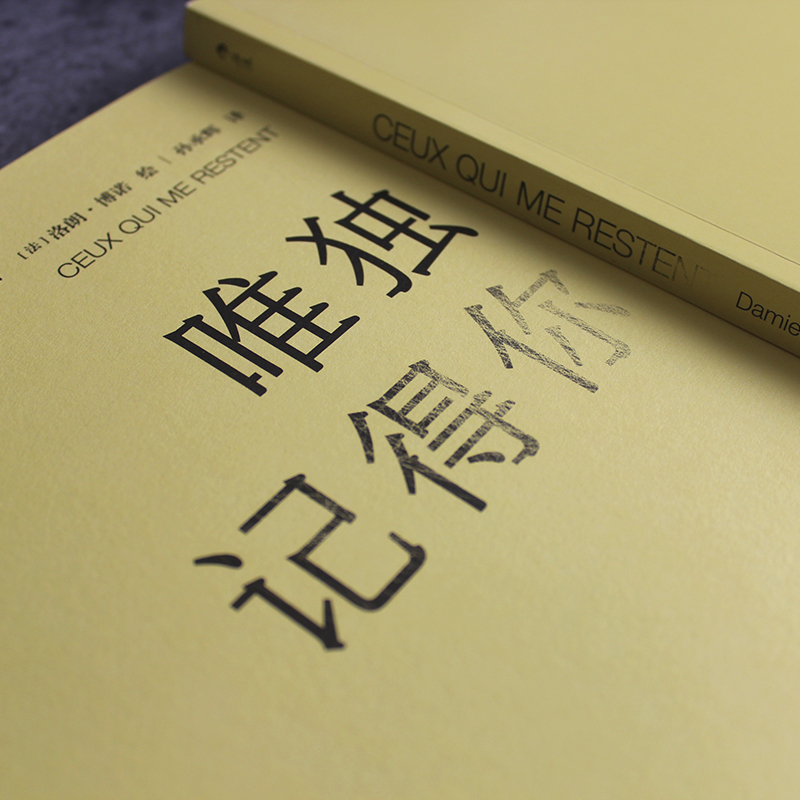 [法]洛朗·博诺 绘 | 孙承辉 译
CEUX QUI ME RESTENT
唯独
记得你
CEUX QUI ME RESTENT Damie